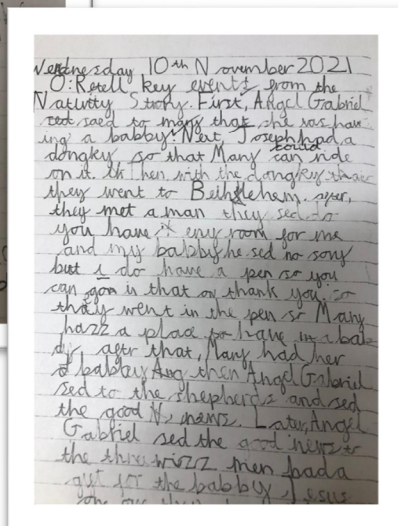 Wednesday 10th November 2021
O: Retell key events from the
Nativity Story. First, Angel Gabriel
saed to many that she was hav
ing a babby. Next, Joseph had a
dongky so that Many could ride
on it. then with the dongky
they went to Bethlehem. after,
they met a man they sed do
you have eny room for me
and my babby he sed no sory
but i do have a pen so you
can go in that oh thank you. so
thay went in the pen so Many
hazz a place to have a bab
dy aftr that, Many had her
babbuy And then Angel Gabriel
sed to the shepherds and sed
the good news. Later, Angel
Gabriel sed the good news to
the three wizz men had a
gift for the babby Jesus